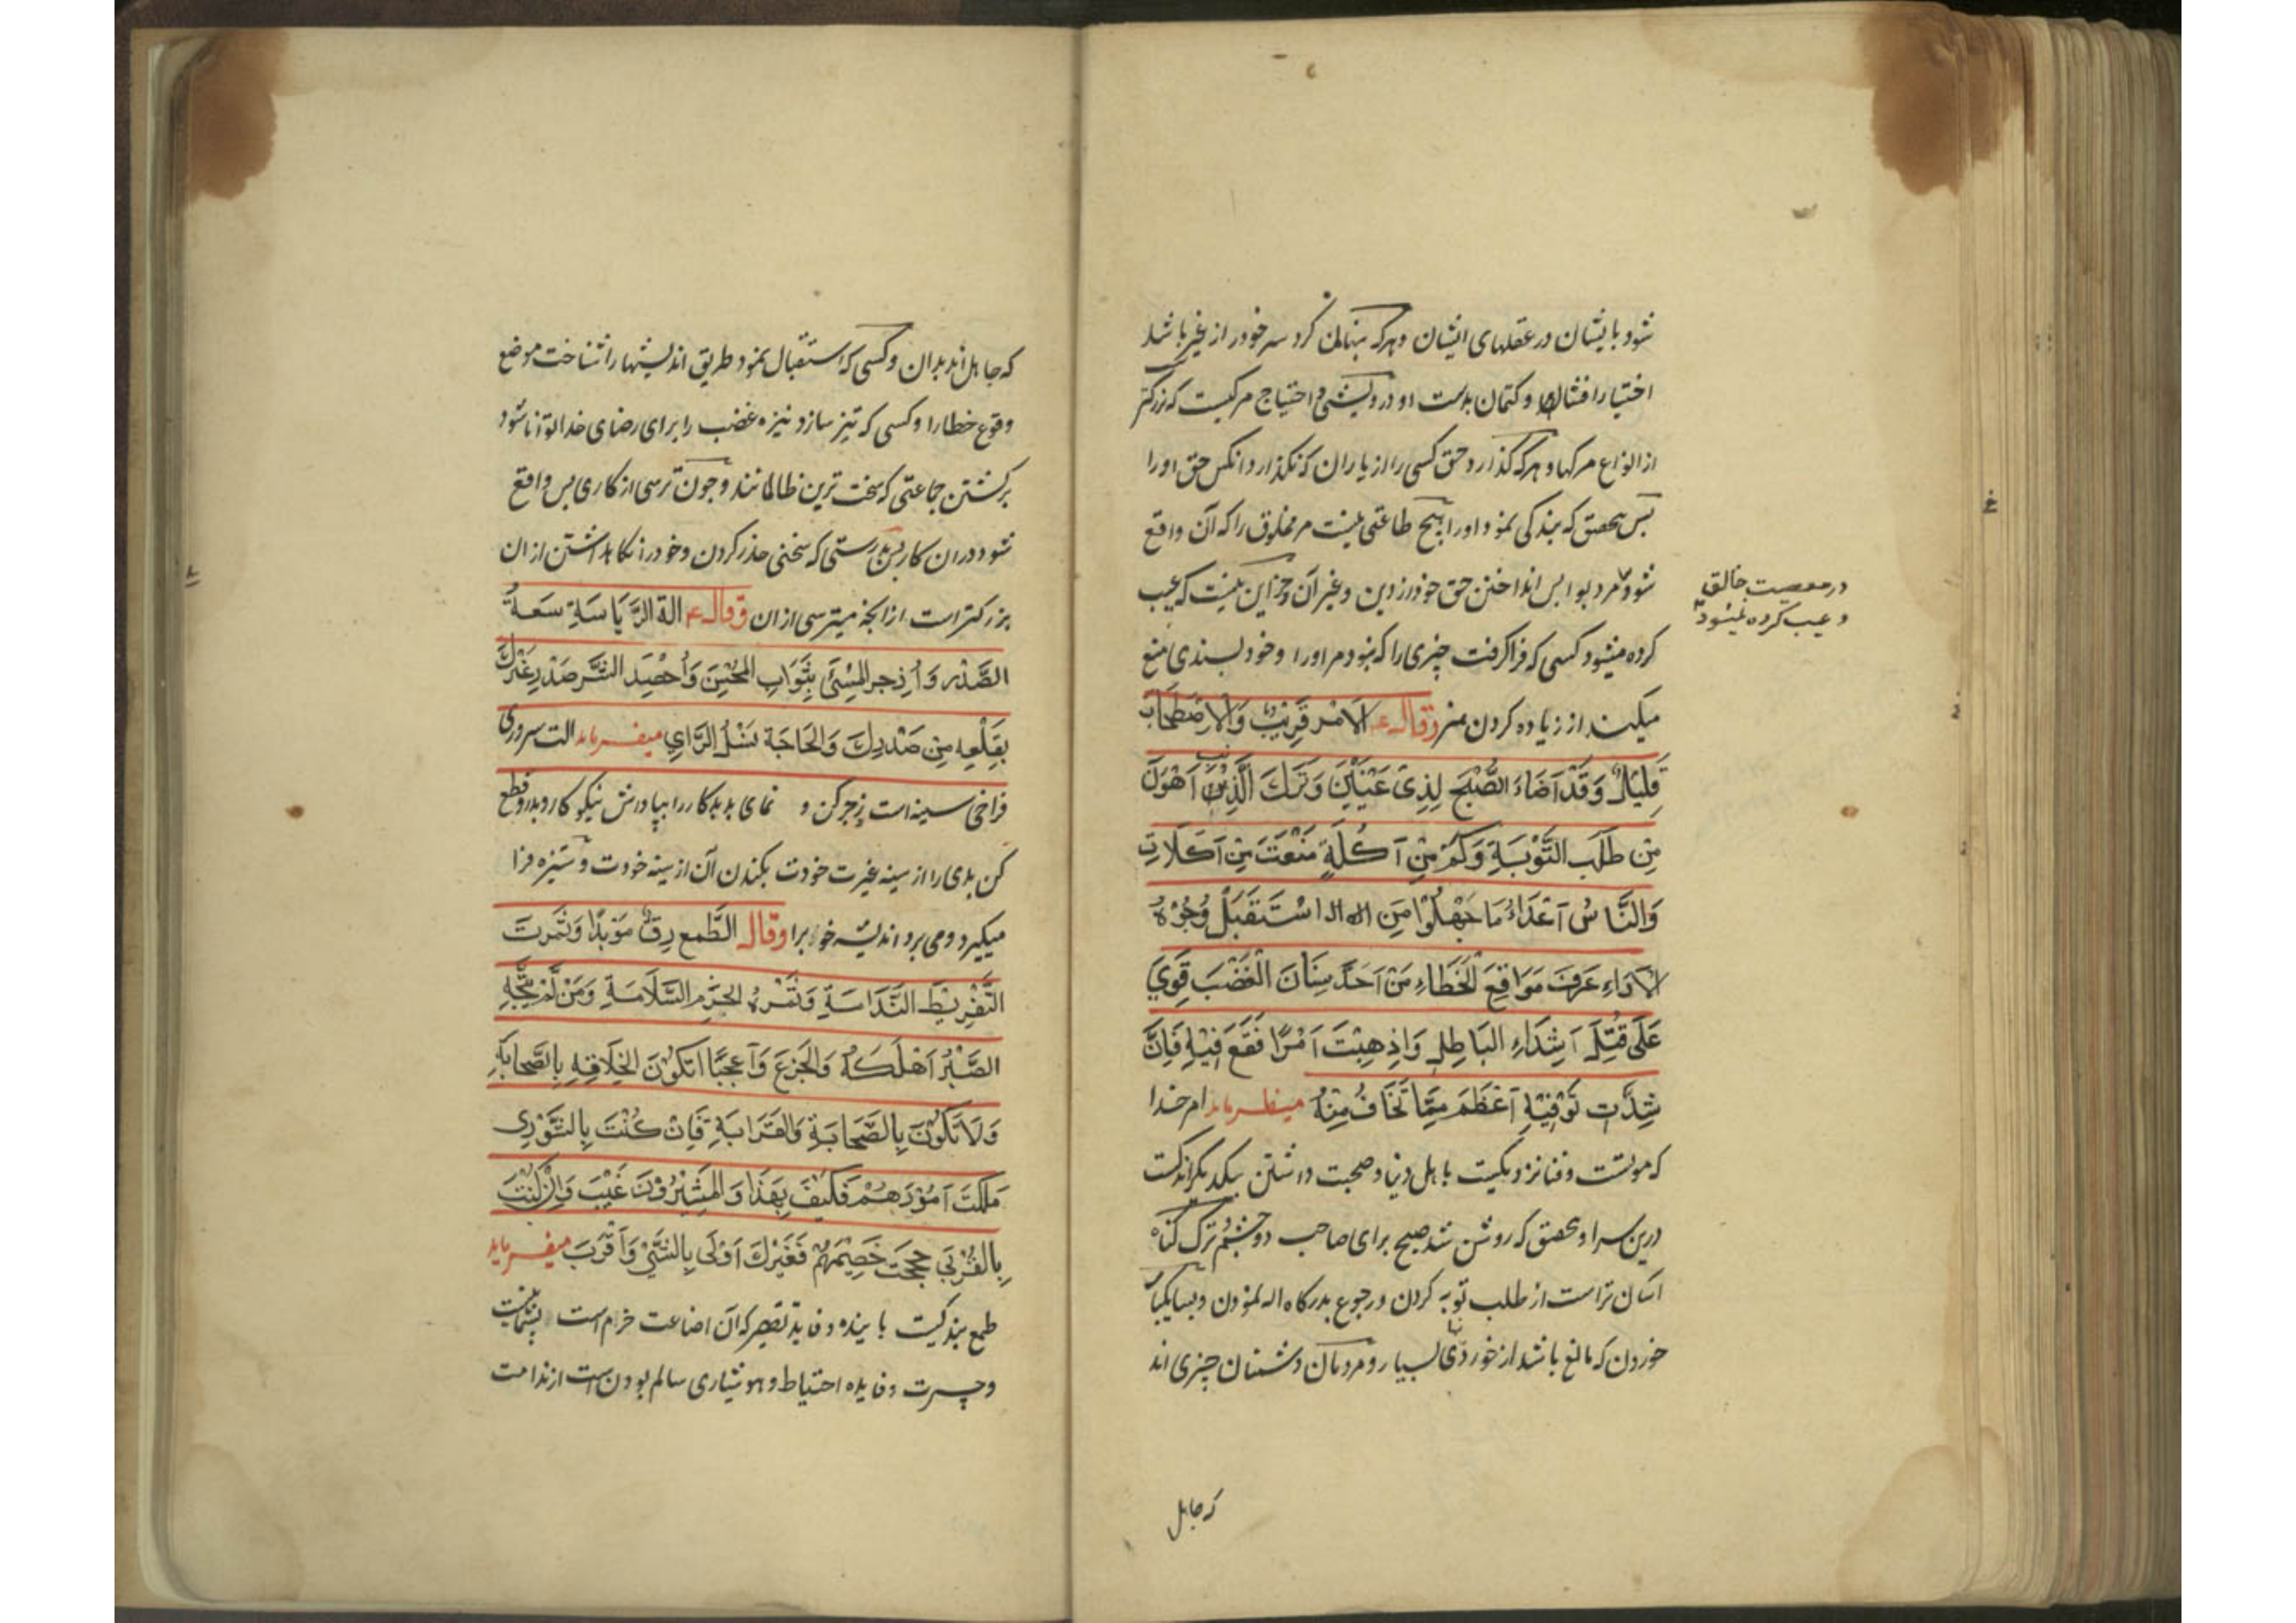 شود بایشان در عقلهای ایشان و هرکه پنهان کرد سر خود را از غیر باشد
اختیار افشا و کتمان بدست او و درویشی و احتیاج مرگیست که بزرگتر
از انواع مرکها و هرکه گذارد حق کسی را از یاران که نگذارد آنکس حق او را
پس بتحقیق که بندگی نمود او را و هیچ طاعتی نیست مر مخلوق را که آن واقع
شود مرد بواپس انداختن حق خود از دین و غیر آن و جز این نیست که عیب
در معصیت خالق
و عیب کرده نمیشود
کرده میشود کسی که فرا گرفت چیزی را که نبود مر او را و خود پسندی منع
میکند از زیاده کردن هنر وقال ع الامر قریب والاصطحاب
قلیل وقد اضاء الصبح لذی عینین وترک الذنب اهون
من طلب التوبة وکم من اکلة منعت من اکلات
والناس اعداء ما جهلوا من استقبل وجوه
الاراء عرف مواقع الخطاء من احد سنان الغضب قوی
علی قتل اشداء الباطل واذ هبت امرا فقع فیه فان
شدت توقیه اعظم مما تخاف منه میفرماید امر خدا
که موتست و فنا نزدیکیست باهل دنیا و صحبت داشتن بیکدیگر اندکست
درین سرا و بتحقیق که روشن شد صبح برای صاحب دو چشم و ترک گناه
آسان تر است از طلب توبه کردن و رجوع بدرگاه اله نمودن و بسا یکبار
خوردن که مانع باشد از خوردنی بسیار و مردمان دشمنان چیزی اند
که جاهل
که جاهل اند بدان و کسی که استقبال نمود طریق اندیشها را شناخت موضع
وقوع خطا را و کسی که تیز سازد نیزه غضب را برای رضای خدا توانا شود
بر کشتن جماعتی که سخت ترین ظالمانند و چون ترسی از کاری پس واقع
شو در ان کار پس بدرستی که سختی حذر کردن و خود را نگاه داشتن از ان
بزرگتر است از آنچه میترسی از ان وقال ع الة الریاسة سعة
الصدر وازجر المسئ بثواب المحسن واحصد الشر صدر غیرک
بقلعه من صدرک والحاجة تسل الرای میفرماید الت سروری
فراخی سینه است زجر کن و نمای بد بدکار را بپاداش نیکوکار و بدرو و قطع
کن بدی را از سینه غیرت خودت بکندن آن از سینه خودت و ستیزه فرا
میگیرد و می برد اندیشه خوب را وقال الطمع رق موبدا وثمرت
التفریط الندامة وثمره الحزم السلامة ومن لم ینجه
الصبر اهلکه والجزع واعجبا اتکون الخلافه بالصحابة
ولا تکون بالصحابة والقرابة فان کنت بالشوری
ملکت امورهم فکیف بهذا والمشیرون غیب وان کنت
بالقربی حججت خصیمهم فغیرک اولی بالنبی واقرب میفرماید
طمع بندگیست پاینده و فایده تقصیر که آن اضاعت حزم است پشیمانیست
و حسرت و فایده احتیاط و هوشیاری سالم بودن است از ندامت